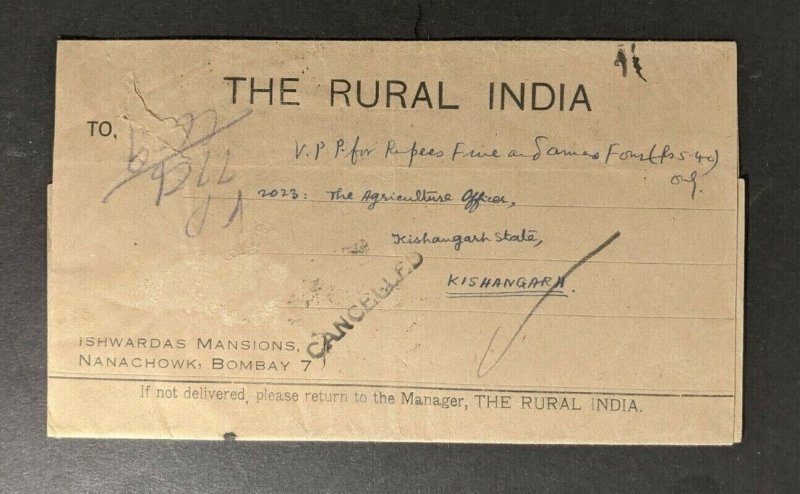 THE RURAL INDIA
TO,
V. P. P. for Rupees Five and annas Four (Rs. 5-4-0)
only.
2023: The Agriculture Officer,
Kishangarh State,
KISHANGARH.
CANCELLED
ISHWARDAS MANSIONS,
NANACHOWK, BOMBAY 7
If not delivered, please return to the Manager, THE RURAL INDIA.